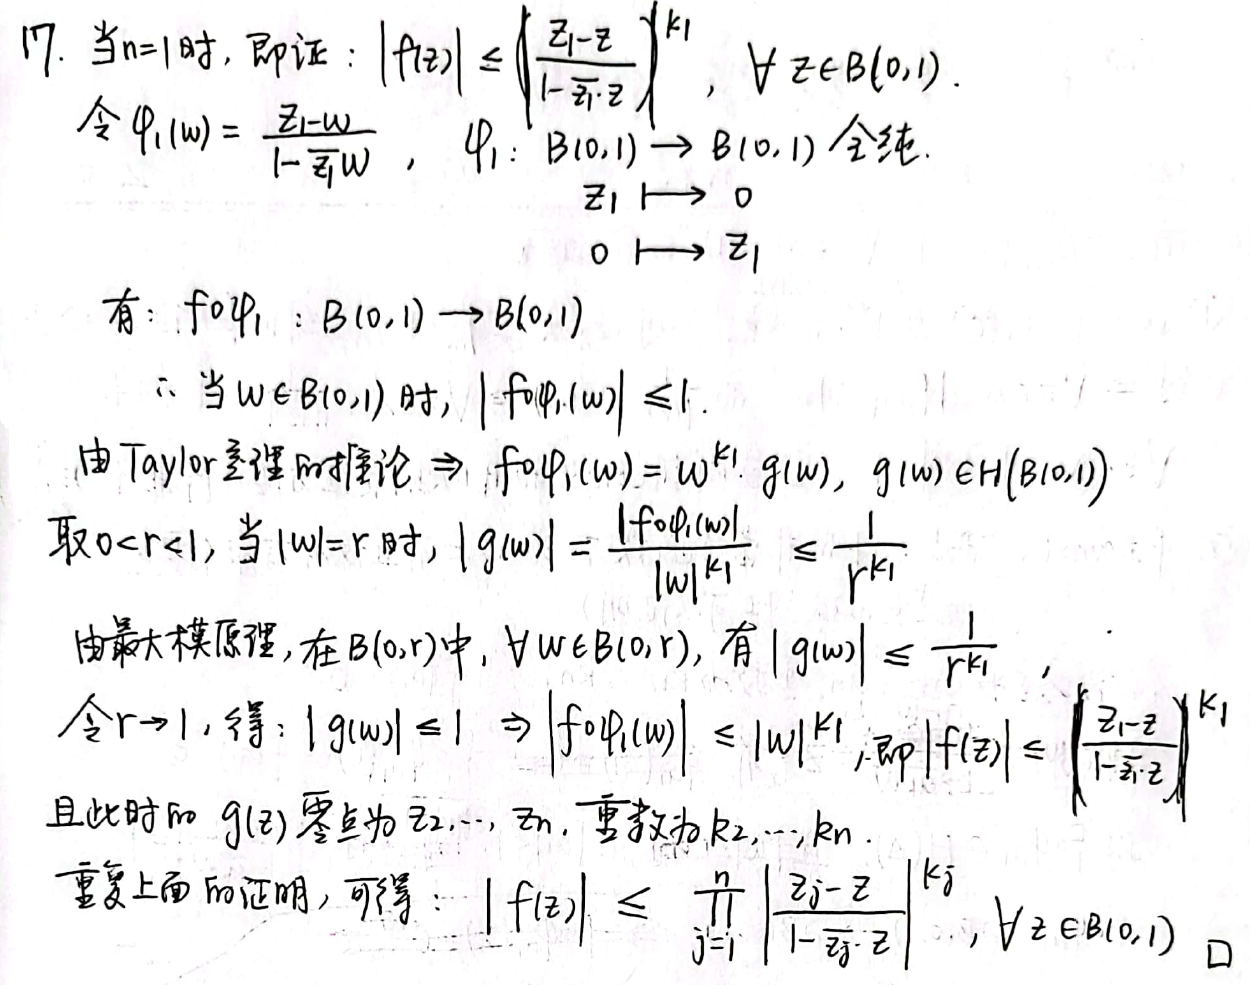 17. 当n=1时, 即证: |f(z)| ≤ |(z₁-z)/(1-z̄₁·z)|^{k₁}, ∀ z∈B(0,1).
令 φ₁(w) = (z₁-w)/(1-z̄₁w), φ₁: B(0,1) → B(0,1) 全纯.
z₁ ↦ 0
0 ↦ z₁
有: f∘φ₁ : B(0,1) → B(0,1)
∴ 当 w∈B(0,1) 时, |f∘φ₁(w)| ≤ 1.
由 Taylor定理的推论 ⇒ f∘φ₁(w) = w^{k₁}·g(w), g(w)∈H(B(0,1))
取 0<r<1, 当 |w|=r 时, |g(w)| = |f∘φ₁(w)|/|w|^{k₁} ≤ 1/r^{k₁}
由最大模原理, 在 B(0,r)中, ∀ w∈B(0,r), 有 |g(w)| ≤ 1/r^{k₁},
令 r→1, 得: |g(w)| ≤ 1 ⇒ |f∘φ₁(w)| ≤ |w|^{k₁}, 即 |f(z)| ≤ |(z₁-z)/(1-z̄₁·z)|^{k₁}
且此时的 g(z) 零点为 z₂,…, zₙ. 重数为 k₂,…, kₙ.
重复上面的证明, 可得: |f(z)| ≤ ∏_{j=1}^{n} |(z_j-z)/(1-z̄_j·z)|^{k_j}, ∀ z∈B(0,1) □